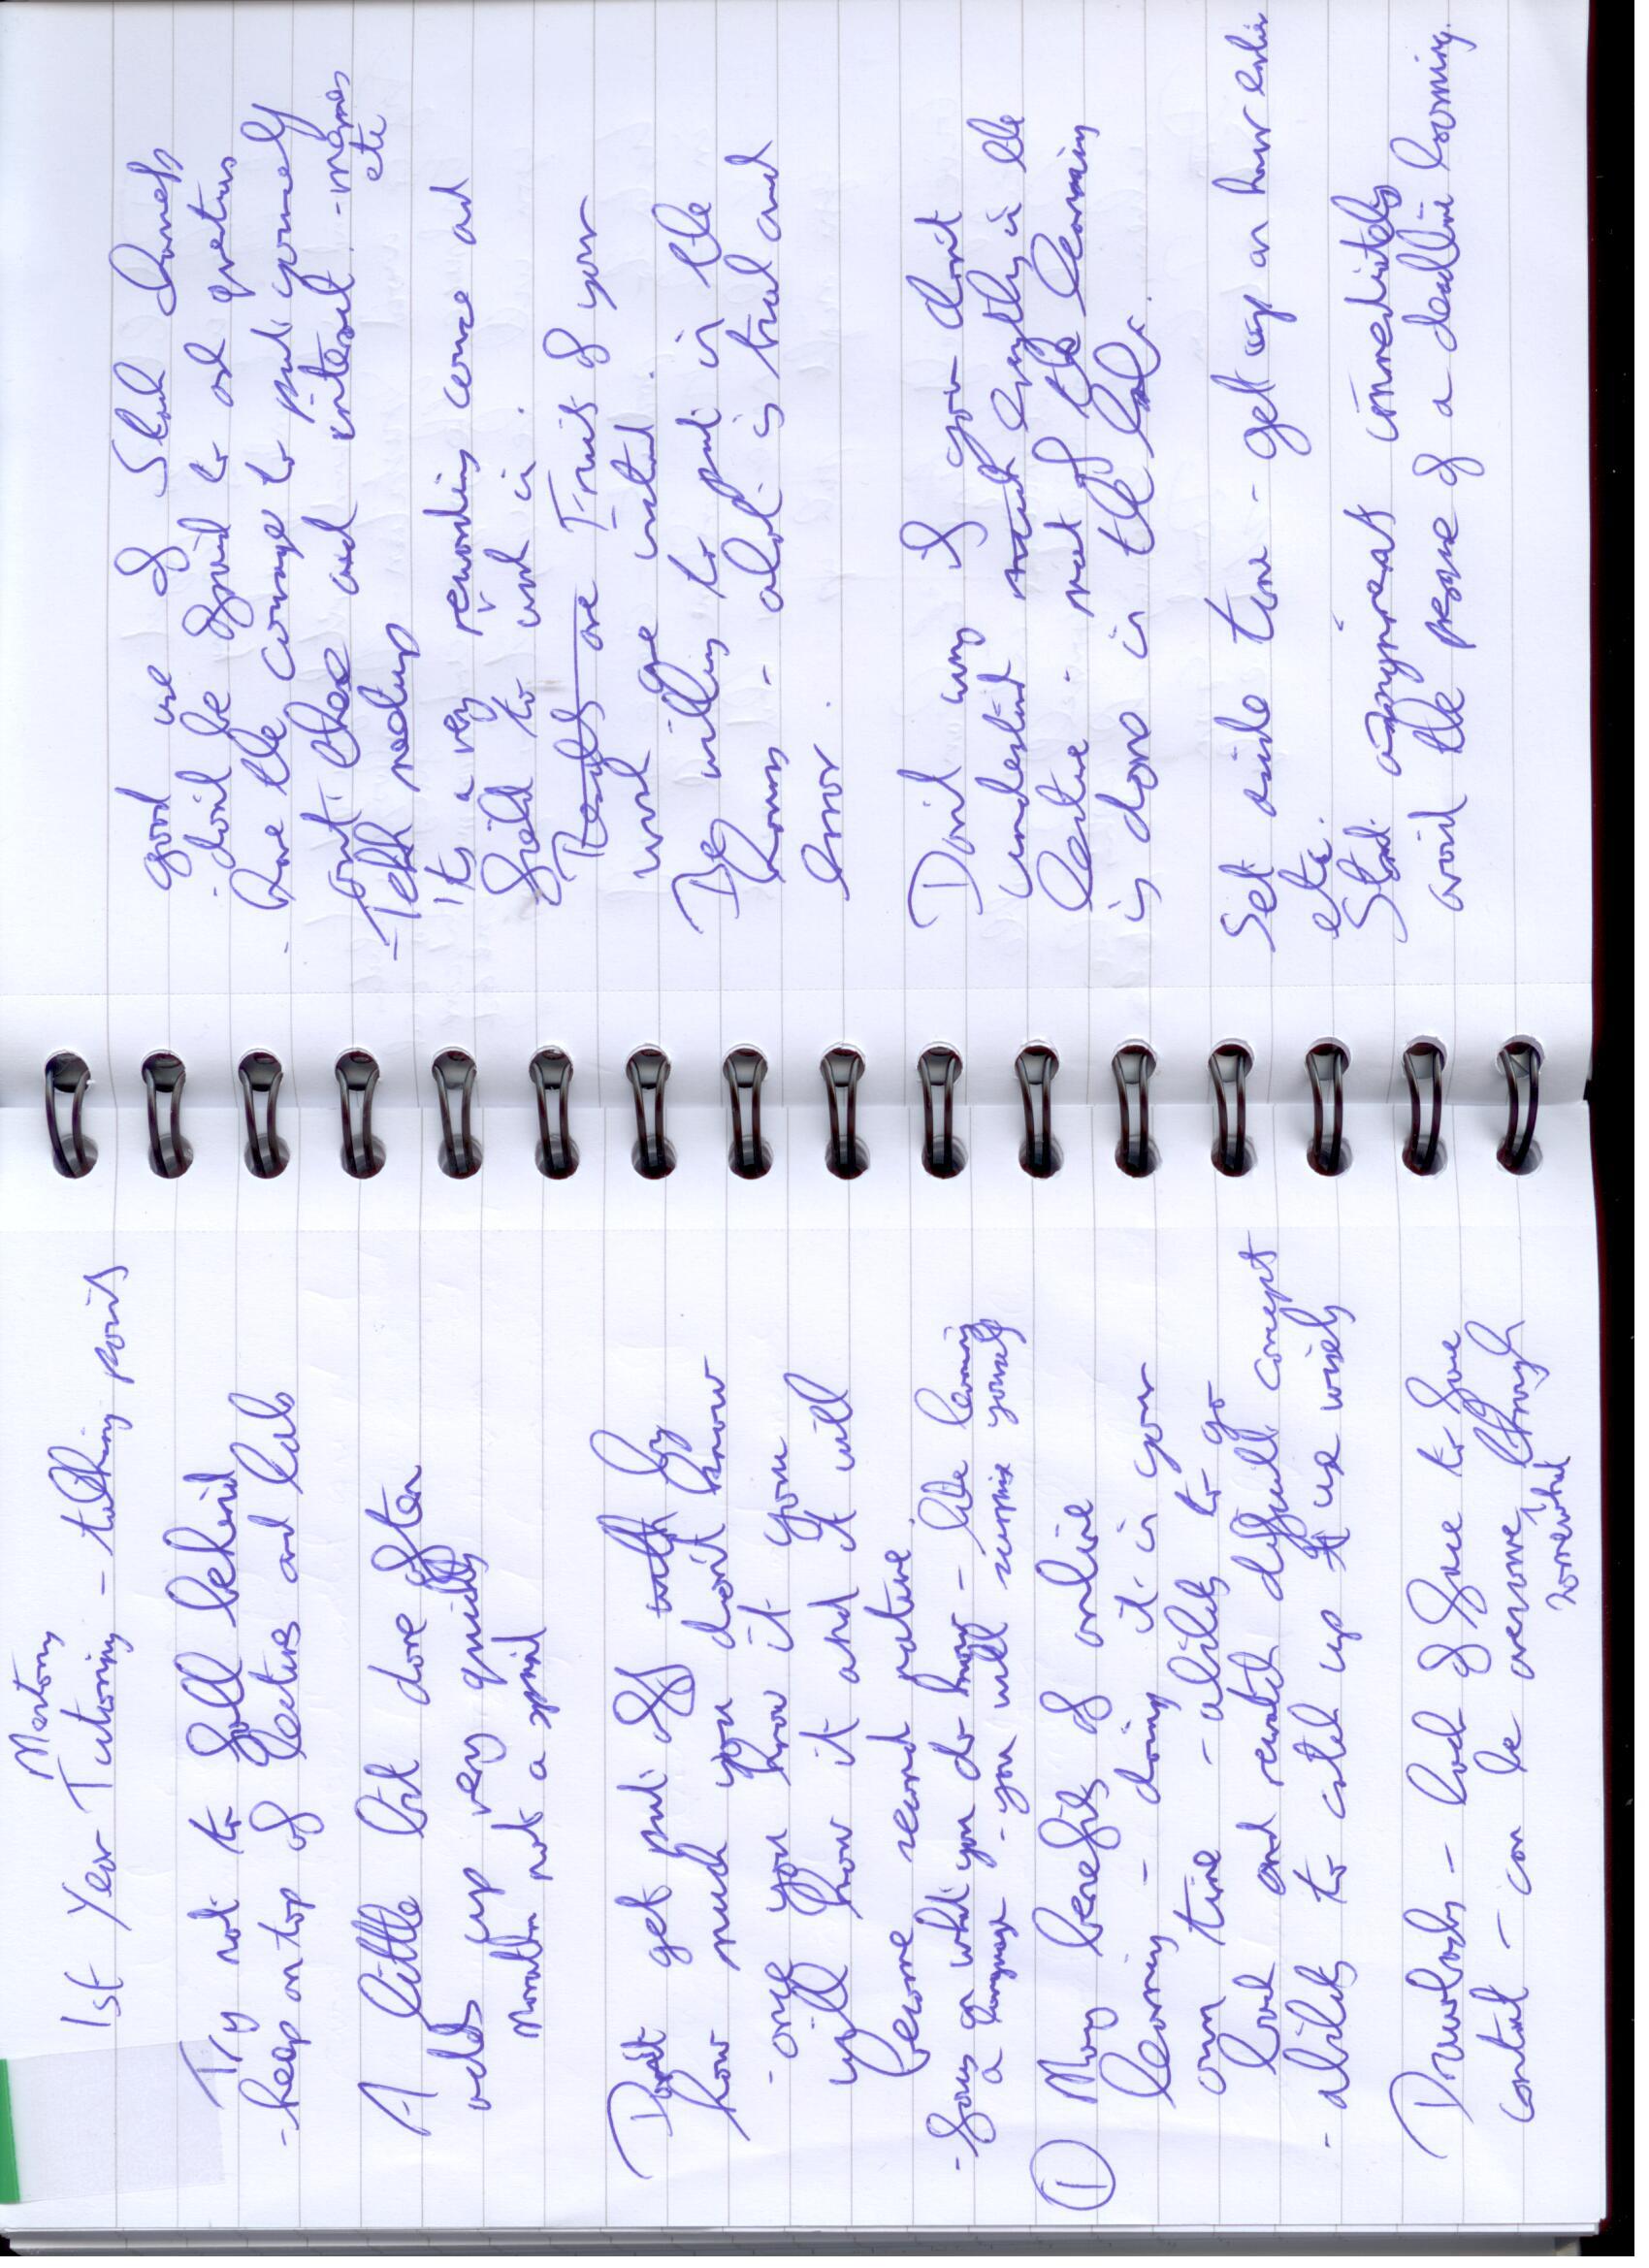 Mentoring
1st Year Tutoring - talking points
Try not to fall behind
- keep on top of lectures and labs
A little bit done often
adds up very quickly
Marathon not a sprint
Don't get put off with by
how much you don't know
- once you know it you
will know it and it will
become second nature.
- focus on what you do know - like learning
a language - you will surprise yourself
① Many benefits of online
learning - doing it in your
own time - ability to go
back and rewatch difficult concepts
- ability to catch up if use wisely
Drawbacks - lack of face to face
contact - can be overcome though
somewhat
good use of Slack channels
- don't be afraid to ask questions
- have the courage to put yourself
out there and interact - memes
etc
- Tech meetups
It's a very rewarding course and
field to work in.
Results are Fruits of your
work are instant.
Be willing to put in the
hours - a lot is trial and
error.
Don't worry if you don't
understand much everything in the
lecture - most of the learning
is done in the labs.
Set aside time - get up an hour earlier
etc.
Start assignments immediately
avoid the pressure of a deadline looming.